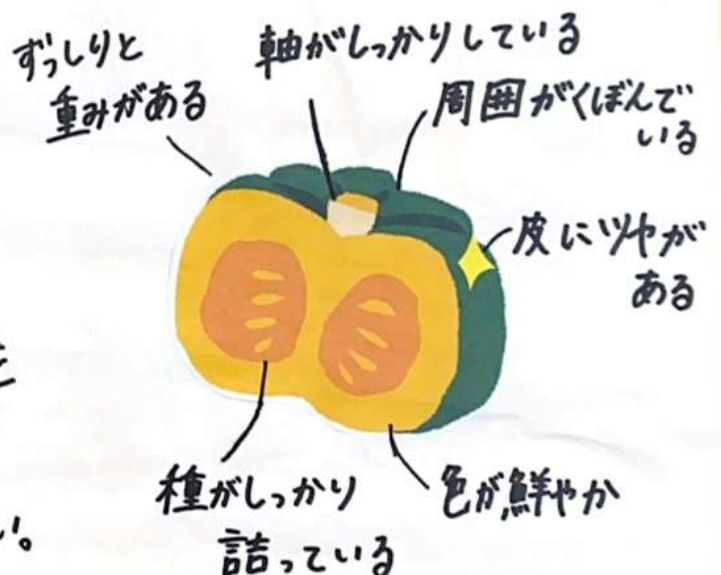 ずっしりと
重みがある
軸がしっかりしている
周囲がくぼんで
いる
皮にツヤが
ある
種がしっかり
詰っている
色が鮮やか
い。